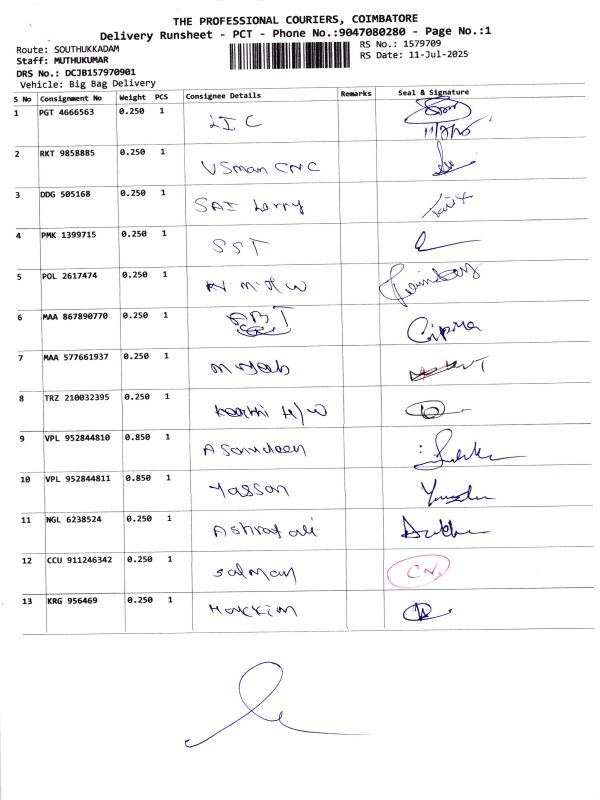 THE PROFESSIONAL COURIERS, COIMBATORE
Delivery Runsheet - PCT - Phone No.:9047080280 - Page No.:1
Route: SOUTHUKKADAM
Staff: MUTHUKUMAR
DRS No.: DCJB157970901
Vehicle: Big Bag Delivery
RS No.: 1579709
RS Date: 11-Jul-2025
S No Consignment No Weight PCS Consignee Details Remarks Seal & Signature
1 PGT 4666563 0.250 1 LIC 11/7/25
2 RKT 9858885 0.250 1 USman CNC
3 DDG 505168 0.250 1 SAI Lorry
4 PMK 1399715 0.250 1 SST
5 POL 2617474 0.250 1
6 MAA 867890770 0.250 1 ABT
7 MAA 577661937 0.250 1
8 TRZ 210032395 0.250 1 Karthi H/W
9 VPL 952844810 0.850 1
10 VPL 952844811 0.850 1 Yasson
11 NGL 6238524 0.250 1 Ashraf ali
12 CCU 911246342 0.250 1 Salman
13 KRG 956469 0.250 1 Hakkim